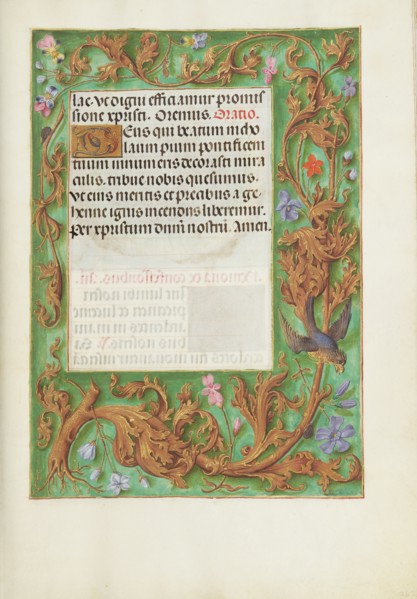 lae. Vt digni efficiamur promis
sione xpristi. Oremus. Oratio.
DEus qui beatum nicho
laum pium pontificem
tuum innumeris decorasti mira
culis. tribue nobis quesumus.
Vt eius meritis et precibus a ge
henne ignis incendiis liberemur.
Per xpristum dnm nostrū. Amen.